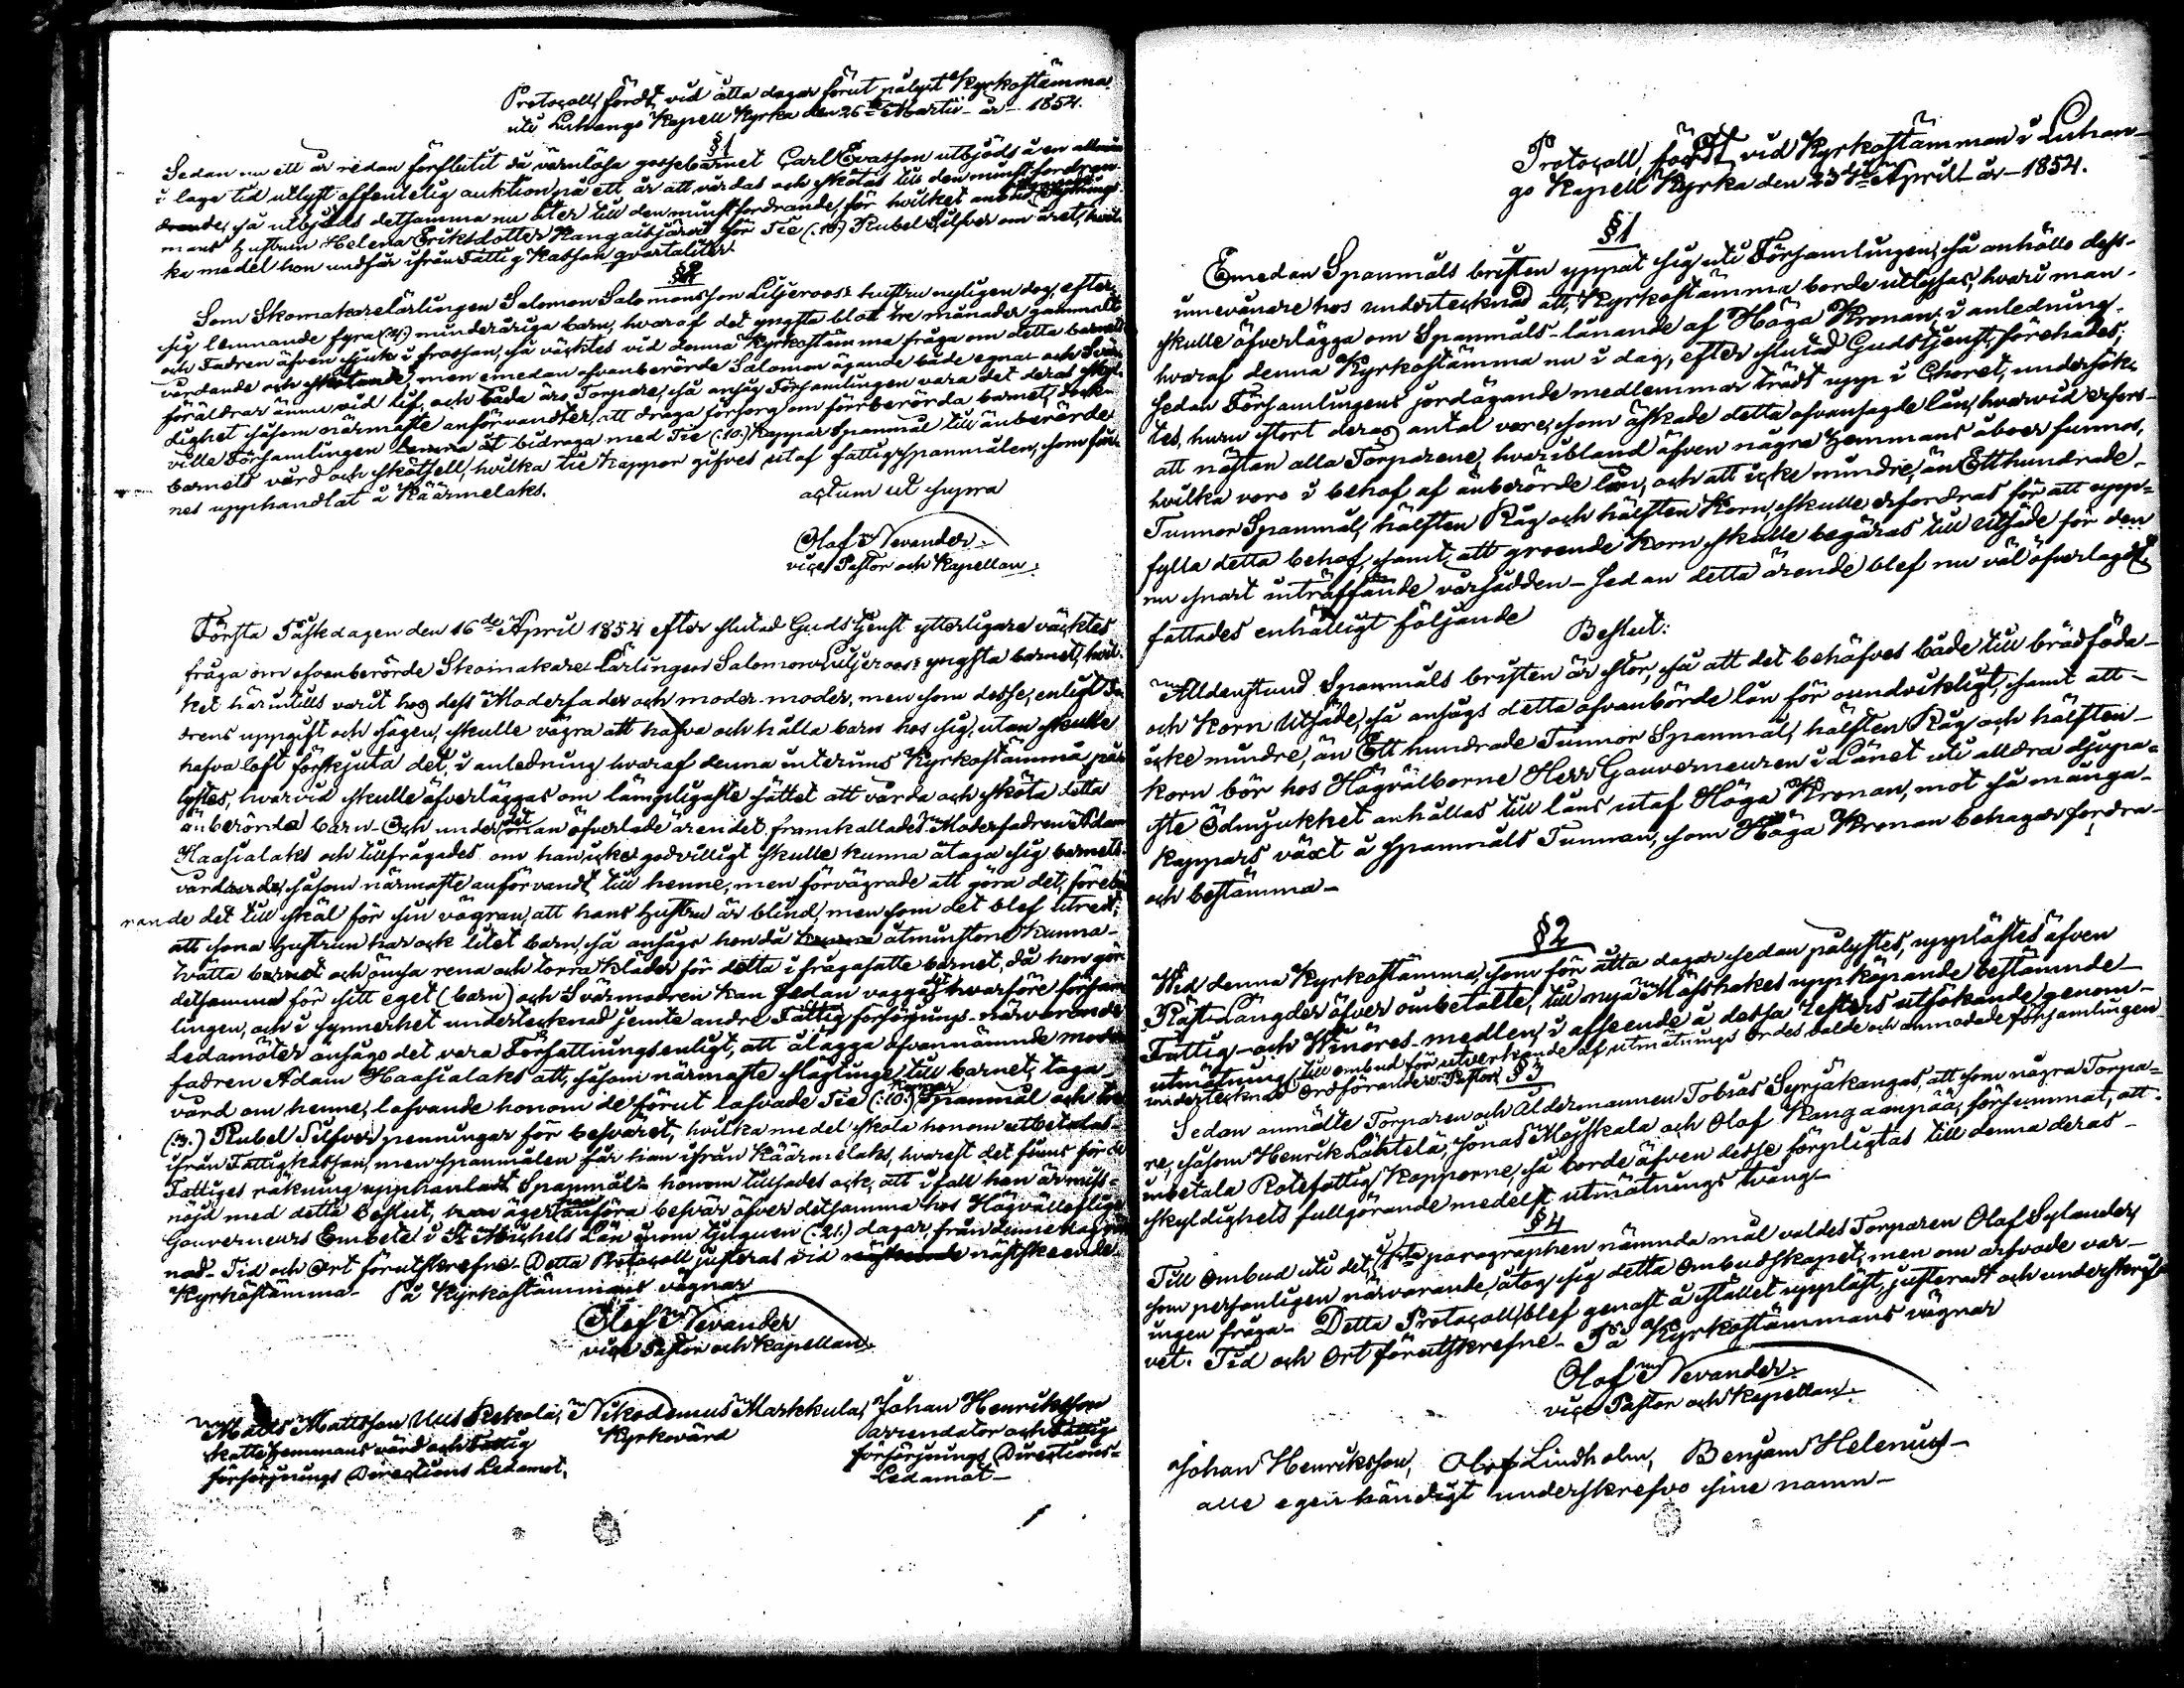 Protocoll, fördt vid åtta dagar förut pålyst Kyrkostämma
uti Luhango Kapell Kyrka den 26de Martii år 1854.
§ 1
Sedan nu ett år redan förflutit då värnlösa gossebarnet Carl Evasson utbjöds å en allmän
i laga tid utlyst offentelig auktion på ett år att vårdas och skötas till den minst fordran
drande, så utbjöds detsamma nu åter till den minst fordrande, för hvilket anbud
mans Hustrun Helena Eriksdotter Kangaisjärvi för Tie (:10:) Rubel Silfver om året, hvil-
ka medel hon undfår ifrån Fattig Kassan qvartaliter.
§ 2
Som Skomakarelärlingen Salomon Salomonsson Liljeroos's hustru nyligen dog, efter
sig lemnande fyra (4:) minderåriga barn, hvaraf det yngsta blott tre månader gammalt
och Fadren äfven sjuk i frossan, så väcktes vid denna Kyrkostämma fråga om detta barnets
vårdande och skötande, men emedan ofvanberörde Salomon ägande både egna och Svär-
föräldrar ännu vid lif, och båda äro Torpare, så ansåg Församlingen vara det deras skyl-
dighet såsom närmaste anförvandter, att draga försorg om förrberörda barnet, dock
ville Församlingen lemna åt bidraga med Tie (:10:) Kappar Spanmål till anberörde
barnets vård och skötsell, hvilka tie kappor gifves utaf fattigspanmålen, som fin-
nes upphandlat å Käärmelaks.
actum ut supra
Olof Nevander
vice Pastor och Kapellan.
Första Påskdagen den 16de April 1854 efter slutad Gudstjenst ytterligare väcktes
fråga om ofvanberörde Skomakare Lärlingen Salomon Liljeroos's yngsta barnet, hvil-
ket härintills varit hos dess Moderfader och moder-moder, men som desse, enligt Fa-
drens uppgift och sägen, skulle vägra att hafva och hålla barn hos sig, utan skulle
hafva loft förskjuta det, i anledning hvaraf denna interims Kyrkostämma på-
lystes, hvarvid skulle öfverläggas om lämpligaste sättet att vårda och sköta detta
anberörda barn. Och under det man öfverlade ärendet framkallades Moderfadren Adam
Haasialaks och tillfrågades om han icke godvilligt skulle kunna åtaga sig barnets
vård, såsom närmaste anförvandt till henne, men förvägrade att göra det, förebä-
rande det till skäl för sin vägran, att hans Hustru är blind, men som det blef utredt,
att sona Hustrun har ock litet barn, så ansågs hon då åtminstone kunna
tvätta barnet och ömsa rena och torra kläder för detta i frågasatte barnet, då hon gör
detsamma för sitt eget (barn) och Svärmodren kan sedan vagga det, hvarföre försam-
lingen, och i synnerhet undertecknad jemte andre Fattig försörjnings-närvarande
Ledamöter ansågo det vara Författningsenligt, att ålägga ofvannämnde moder
fadren Adam Haasialaks att, såsom närmaste slägtinge till barnet, taga
vård om henne, lofvande honom de förut lofvade Tie (:10:) Kappar Spanmål och tre
(3:) Rubel Silfver penningar för besväret, hvilka medel skola honom utbetalas
ifrån Fattigkassan, men spanmålen får han ifrån Käärmelaks, hvarest det finns för de
Fattiges räkning upphandladt Spanmål, honom tillsades ock, att i fall han är miss-
nöjd med detta Beslut, äger han anföra besvär öfver detsamma hos Högvällofliga
Gouverneurs Embetet i St Michels Län inom tjuguen (:21:) dagar, från denne dag räk-
nad. Tid och Ort förutskrefne. Detta Protocoll justeras vid nästskeende
Kyrkostämma. På Kyrkostämmans vägnar
Olof Nevander
vice Pastor och Kapellan.
Matts Mattsson Uus Pekola, Nikodemus Markkula, Johan Henriksson
Skattehemmans värd och Fattig Kyrkovärd Arrendator och Fattig
försörjnings Directions Ledamot. försörjnings Directions-
Ledamot
Protocoll, fördt vid Kyrkostämman i Luhan-
go Kapell Kyrka den 23dje April år 1854.
§ 1
Emedan Spanmåls bristen yppat sig uti Församlingen, så anhöllo dess
innevånare hos undertecknad att, Kyrkostämma borde utlysas, hvari man
skulle öfverlägga om Spanmåls-lånande af Höga Kronan: i anledning
hvaraf denna Kyrkostämma nu i dag, efter slutad Gudstjenst, förehades;
Sedan Församlingens jordägande medlemmar trädt upp i Choret, undersök-
tes, huru stort deras antal vore, som äskade detta ofvansagde lån, hvarvid erfors
att nästan alla Torparene, hvaribland äfven några Hemmans åboer funnos,
hvilka voro i behof af anberörde lån, och att icke mindre, än Etthundrade
Tunnor Spanmål, hälften Råg och hälften Korn, skulle erfordras för att upp-
fylla detta behof, samt att groende Korn skulle begäras till utsäde för den
nu snart inträffande vårsådden. Sedan detta ärende blef nu väl öfverlagdt
fattades enhälligt följande
Beslut:
Alldenstund Spanmåls bristen är stor, så att det behöfves både till brödföda
och Korn Utsäde, så ansågs detta ofvanbörde lån för oundvikligt, samt att
icke mindre, än Ett hundrade Tunnor Spanmål, hälften Råg och hälften
Korn bör hos Högvälborne Herr Gouverneuren i Länet uti alldra djupa-
ste Ödmjukhet anhållas till låns utaf Höga Kronan, mot så många
Kappars växt å Spanmåls Tunnan, som Höga Kronan behagar fordra
och bestämma
§ 2
Vid denna Kyrkostämma, som för åtta dagar sedan pålystes, upplästes äfven
Rest-Längder öfver ombetalte, till nya Mässhakes uppköpande bestämnde
Fattig- och Winöres-medlen, i afseende å dessa Resters utsökande genom
utmätning, till ombud för utverkande af utmätnings ordes valde och anmodade församlingen
undertecknad Ordförande v. Pastor. § 3
Sedan anmälte Torparen och Åldermannen Tobias Syrjäkangas, att som några Torpa-
re, såsom Henrik Lähtelä, Jonas Mäjskala och Olof Kangaanpää, försummat, att
inbetala Rotefattig Kapporne, så borde äfven desse förpligtas till denna deras
skyldighets fullgörande medelst utmätnings tvång.
§ 4
Till Ombud uti det, i sista paragraphen nämnda mål valdes Torparen Olof Sylander,
som personligen närvarande, åtog sig detta Ombudskapet, men om arfvode var
ingen fråga. Detta Protocoll blef genast å stället uppläst, justeradt och underskrif-
vet. Tid och Ort förutskrefne. På Kyrkostämmans vägnar
Olof Nevander
vice Pastor och Kapellan.
Johan Henriksson, Olof Lindholm, Benjam Helenius
alle egenhändigt underskrefvo sine namn